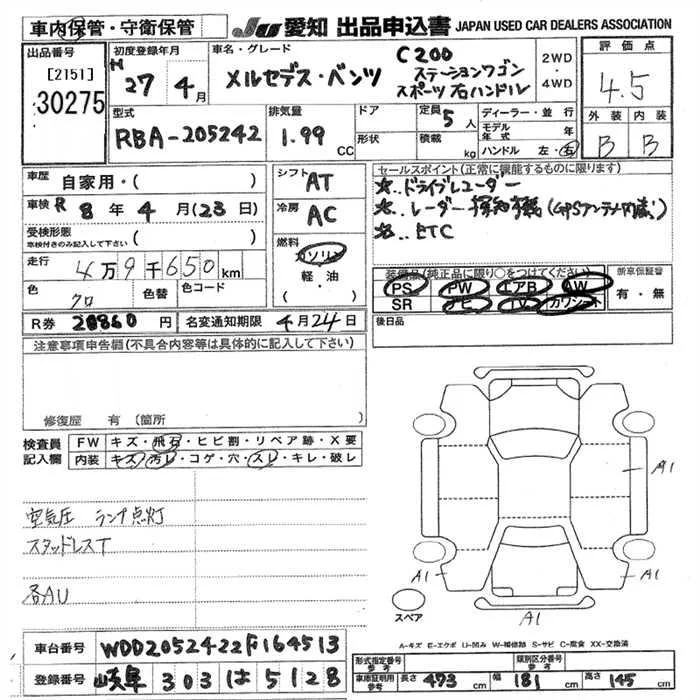 車内保管・守衛保管
JU 愛知 出品申込書 JAPAN USED CAR DEALERS ASSOCIATION
出品番号
[2151]
30275
初度登録年月
H 27 年 4 月
車名・グレード
メルセデス・ベンツ
C200
ステーションワゴン
スポーツ 右ハンドル
2WD
・
4WD
評価点
4.5
外装 内装
B B
型式
RBA-205242
排気量
1.99 CC
ドア
形状
定員 5 人
積載 kg
ディーラー・並行
モデル年式 年
ハンドル 左・右
車歴 自家用・( )
車検 R 8 年 4 月(23日)
受検形態
車検付きのみ記入して下さい ( )
走行 4万9千650km
色 クロ 色替 色コード
R券 20860 円 名変通知期限 4月24日
シフト AT
冷房 AC
燃料
ガソリン
軽・油
( )
セールスポイント(正常に機能するものに限ります)
☆..ドライブレコーダー
☆..レーダー探知機(GPSアンテナ内蔵)
☆..ETC
装備品(純正品に限り○をつけてください)
PS PW エアB AW
SR ナビ TV カワシート
新車保証書
有・無
後日品
注意事項申告欄(不具合内容等は具体的に記入して下さい)
修復歴 有 (箇所 )
検査員記入欄
FW キズ・飛石・ヒビ割・リペア跡・X要
内装 キズ・汚レ・コゲ・穴・スレ・キレ・破レ
空気圧 ランプ点灯
スタッドレスT
各AU
A1
A1
A1
A1
スペア
A-キズ E-エクボ U-凹み W-補修跡 S-サビ C-腐食 XX-交換済
車台番号 WDD2052422F164513
登録番号 岐阜 303 は 5128
形式指定番号 参考
類別区分番号 参考
車庫証明用 参考 長さ 473 cm 幅 181 cm 高さ 145 cm